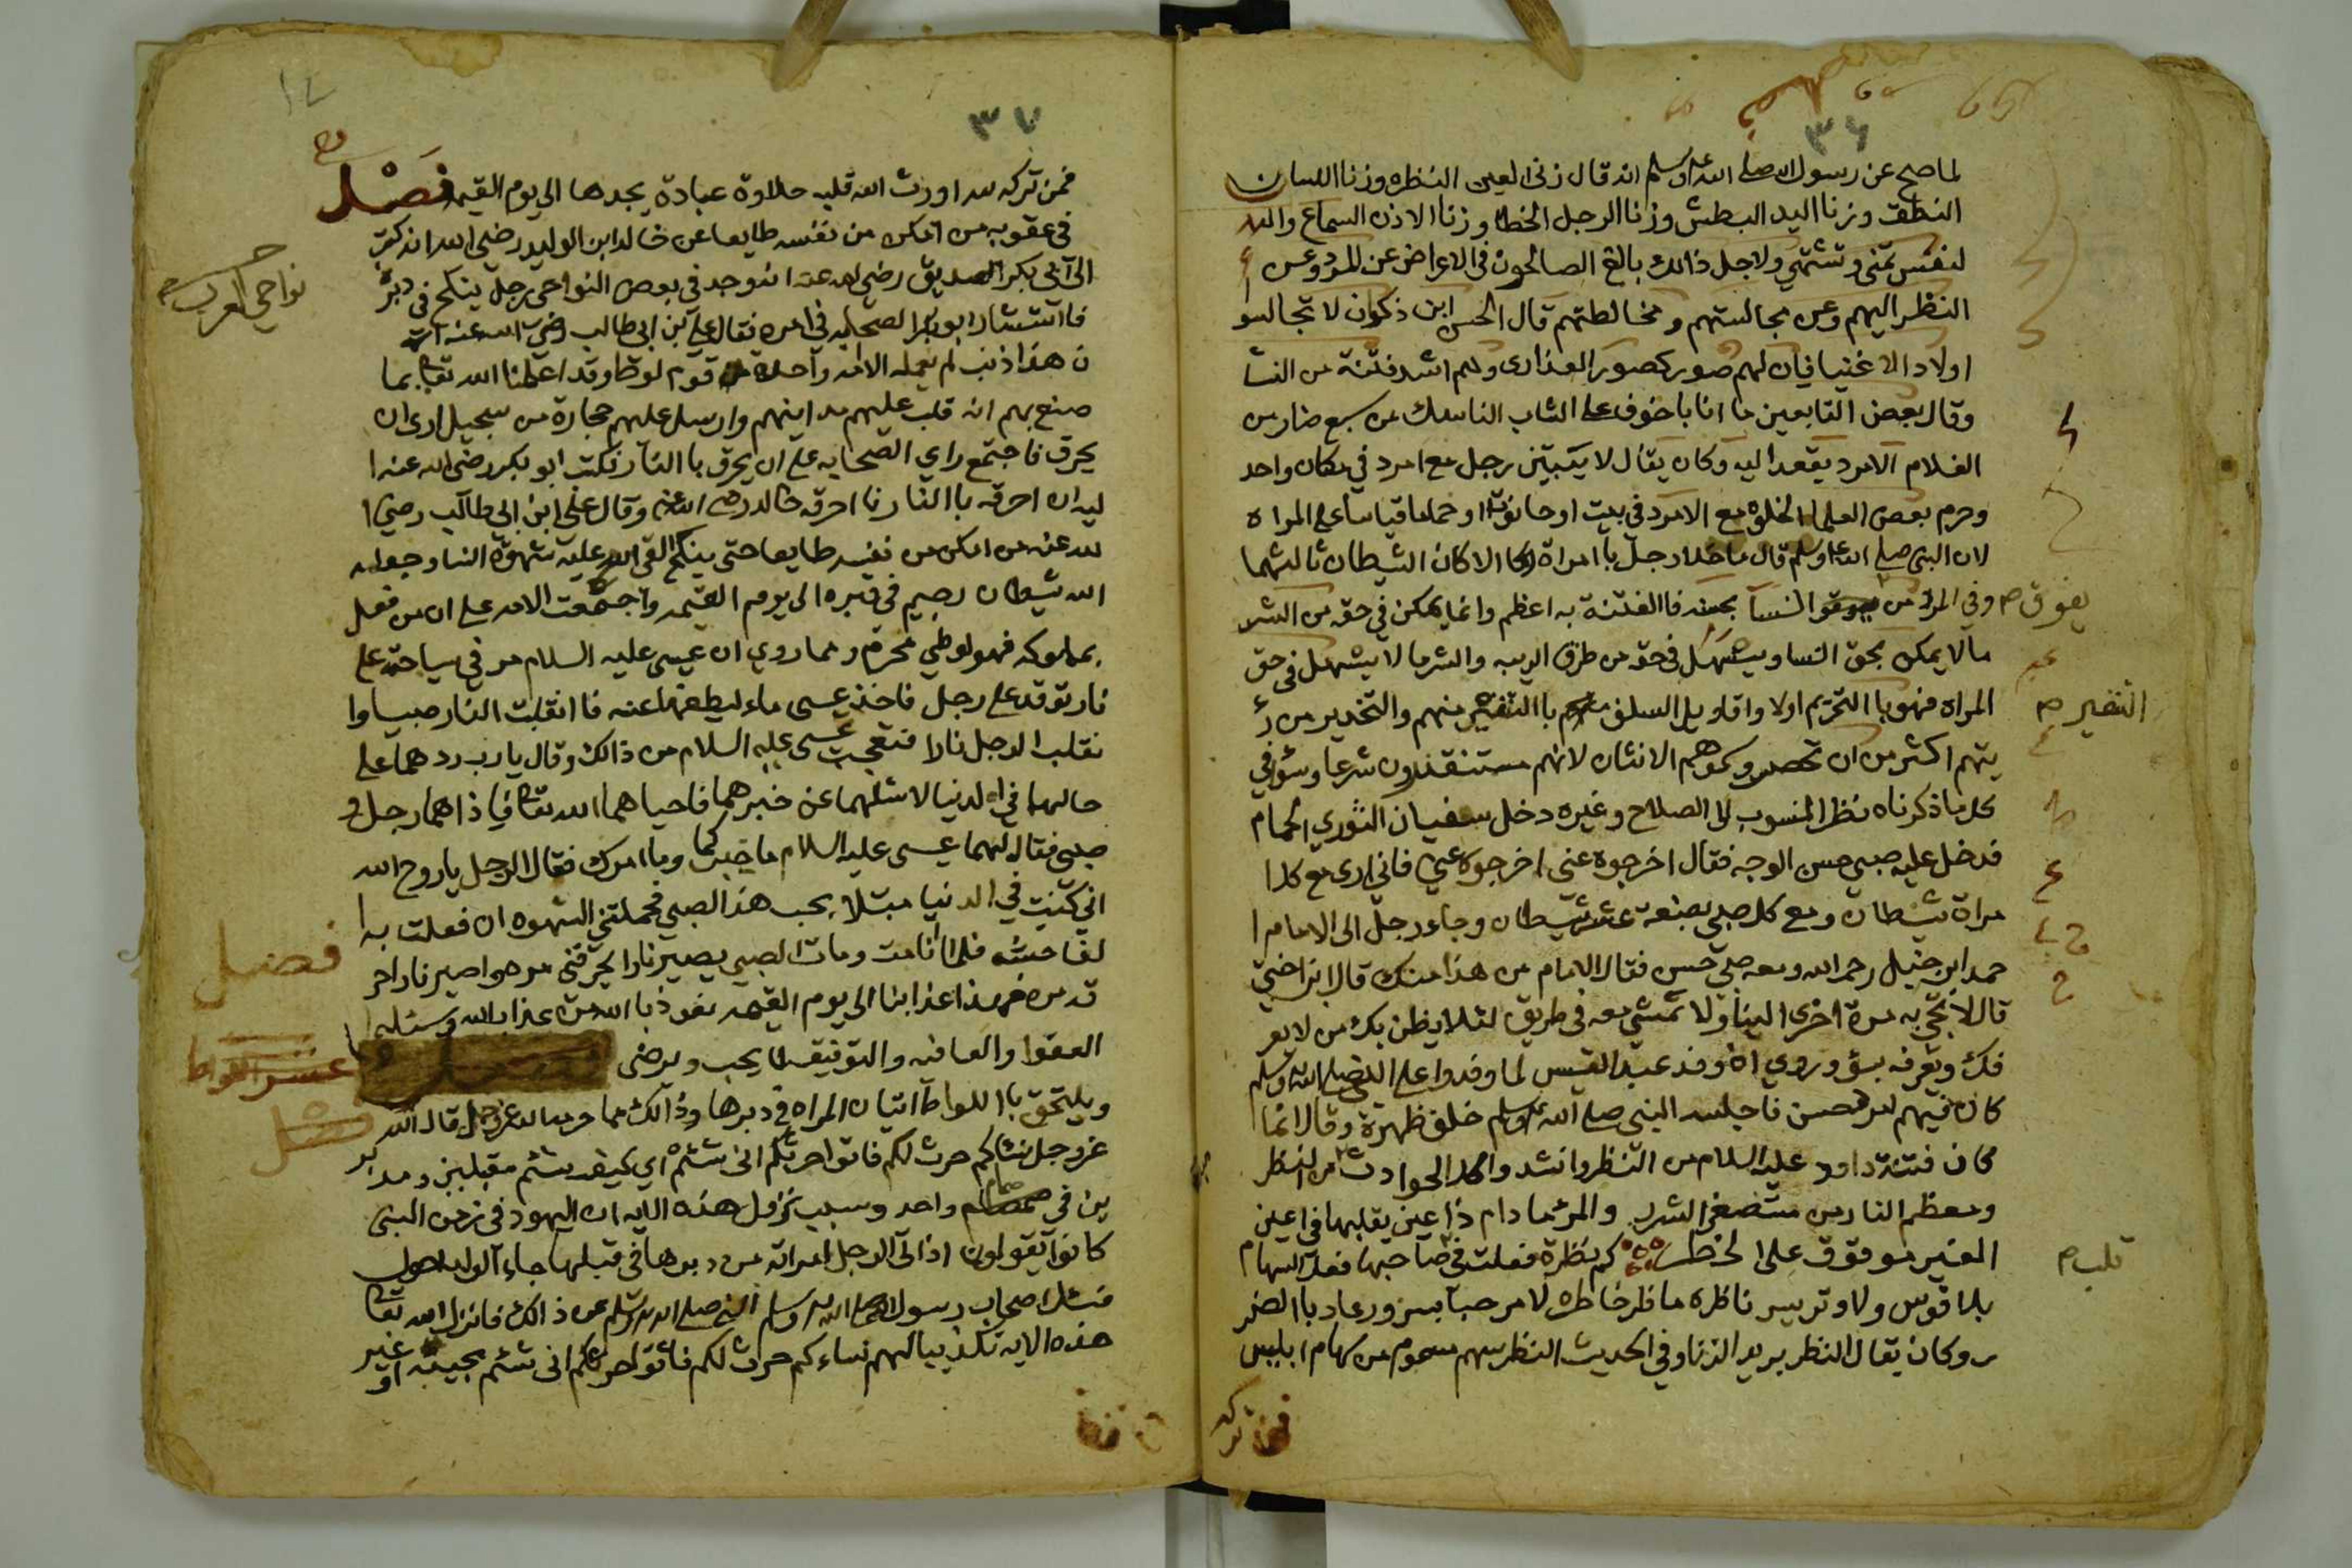 ٣٦
لما صح عن رسول الله صلى الله عليه وسلم انه قال زنى العين النظره وزنا اللسان
النطق وزنا اليد البطش وزنا الرجل الخطا وزنا الاذن السماع والنـ
لنفس تمنى وتشتهي ولاجل ذالك بالغ الصالحون في الاعراض عن المرد وعن ا
النظر اليهم وعن مجالستهم ومخالطتهم قال الحسن ابن ذكوان لا تجالسو
اولاد الاغنيا فان لهم صور كصور العذارى وهم اشد فتنة من النسا
وقال بعض التابعين ما انا باخوف على الشاب الناسك من سبع ضار من
الغلام الامرد يقعد اليه وكان يقال لا يبيتين رجل مع امرد في مكان واحد
وحرم بعض العلما الخلوه مع الامرد في بيت او حانوت او حمام قياسا على المراة
لان النبي صلى الله عليه وسلم قال ما خلا رجل باامراة الا كان الشيطان ثالثهما
وفي المرد من يفوق النسا بحسنه فاالفتنة به اعظم وانما يمكن في حقه من الشر
مالا يمكن بحق النسا ويتسهل في حقه من طرق الريبه والشر مالا يتسهل في حق
المراه فهو باالتحريم اولا واقاويل السلف باالتنفير منهم والتحذير من رؤ
يتهم اكثر من ان تحصر وسموهم الانتان لانهم مستنقذرون شرعا وسوا في
كل ما ذكرناه نظر المنسوب الى الصلاح وغيره دخل سفيان الثوري الحمام
فدخل عليه صبي حسن الوجه فقال اخرجوه عني اخرجوه عني فاني ارى مع كل ا
مراة شيطان ومع كل صبي بضعة عشر شيطان وجاء رجل الى الامام ا
حمد ابن حنبل رحمه الله ومعه صبي حسن فقال الامام من هذا منك قال ابن اختي
قال لا تجي به مرة اخرى الينا ولا تمشي معه في طريق لئلا يظن بك من لا يعر
فك ويعرفه بسؤ وروي ان وفد عبد القيس لما وفدوا على النبي صلى الله عليه وسلم
كان فيهم امرد حسن فاجلسه النبي صلى الله عليه وسلم خلف ظهره وقال انما
كان فتنة داود عليه السلام من النظر وانشدوا كل الحوادث من النظر
ومعظم النار من مستصغر الشرر والمرء ما دام ذا عين يقلبها في اعين
الغير موقوق على الخطر كم نظرة فعلت في صاحبها فعل السهام
بلا قوس ولا وتر يسر ناظره ما ظر خاطره لا مرحبا بسرور عاد باالضر
ر وكان يقال النظر بريد الزنا وفي الحديث النظر سهم مسموم من سهام ابليس
يفوق
التنفير
قلب
فمن تركه
٣٧
فمن تركه لله اورث الله قلبه حلاوة عبادة يجدها الى يوم القيمه فصل
في عقوبه من امكن من نفسه طايعا عن خالد ابن الوليد رضي الله انه كتب
الى ابي بكر الصديق رضي الله عنه انه وجد في بعض النواحي رجل ينكح في دبره
فاستشار ابو بكر الصحابه في امره فقال علي ابن ابي طالب رضي الله عنه
ن هذا ذنب لم يعمله الا امه واحده من قوم لوط وقد اعلمنا الله تعالى بما
صنع بهم انه قلب عليهم مداينهم وارسل عليهم حجارة من سجيل ارى ان
يحرق فاجتمع راي الصحابه على ان يحرق باالنار فكتب ابو بكر رضي الله عنه ا
ليه ان احرقه باالنار فاحرقه خالد رضي الله عنه وقال علي ابن ابي طالب رضي ا
لله عنه من امكن من نفسه طايعا حتى ينكح القى الله عليه شهوة النسا وجعله
الله شيطان رجيم في قبره الى يوم القيمه واجتمعت الامه على ان من فعل
بمملوكه فهو لوطي محرم ومما روي ان عيسى عليه السلام مر في سياحته على
نار توقد على رجل فاخذ عيسى ماء ليطفها عنه فاانقلبت النار صبيا وا
نقلب الرجل نارا فتعجب عيسى عليه السلام من ذالك وقال يارب ردهما على
حالهما في الدنيا لاسئلهما عن خبرهما فاحياهما الله تعالى فاذاهما رجل و
صبي فقال لهما عيسى عليه السلام ما خبركما وما امرك فقال الرجل يا روح الله
اني كنت في الدنيا مبتلا بحب هذا الصبي فحملتني الشهوه ان فعلت به ا
لفاحشه فلما انا مت ومات الصبي يصير نارا يحرقني مره واصير نارا احر
قه مره فهذا عذابنا الى يوم القيمه نعوذ باالله من عذاب الله ونسئله ا
العفوا والعافيه والتوفيق لما يحب ويرضى
ويلتحق باللواط اتيان المراه في دبرها وذالك مما حرمه الله عز وجل قال الله
عز وجل نساكم حرث لكم فاتوا حرثكم انى شئتم اي كيف شئتم مقبلين ومدبر
ين في صمام واحد وسبب نزول هذه الايه ان اليهود في زمن النبي
كانوا يقولون اذا اتى الرجل امراته من دبرها في قبلها جاء الولد احول
فسئل اصحاب رسول الله صلى الله عليه وسلم النبي صلى الله عليه وسلم عن ذالك فانزل الله تعالى
هذه الايه تكذيبا لهم نساءكم حرث لكم فاتوا حرثكم انى شئتم مجيبه او غير
نواحي العرب
فصل
عشر اللواط
فصل